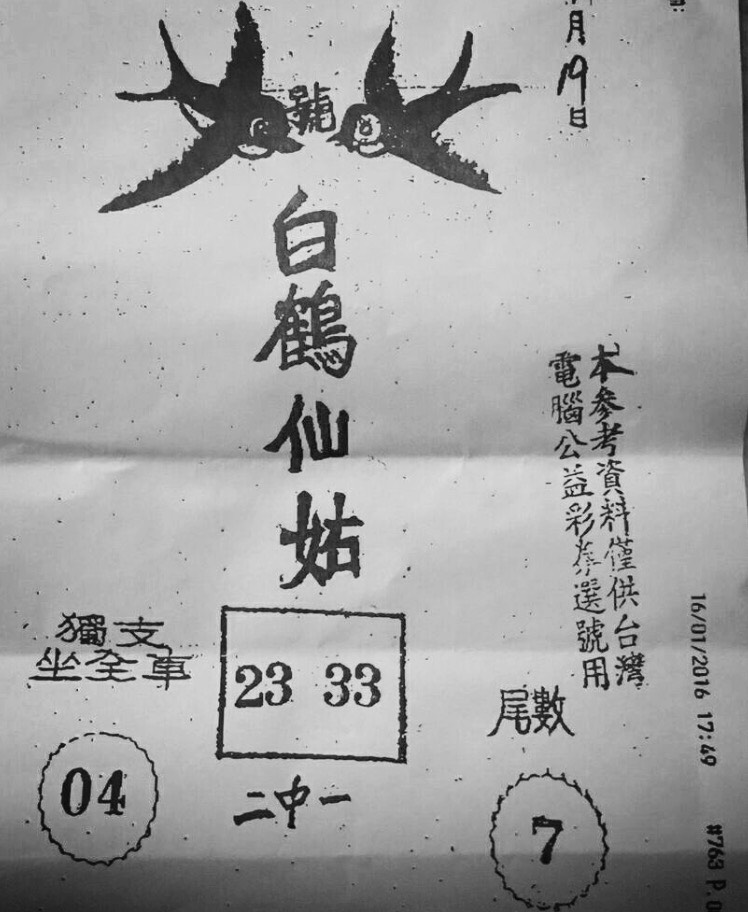 月19日
號
白鶴仙姑
本參考資料僅供台灣
電腦公益彩券選號用
獨支
坐全車
04
23 33
二中一
尾數
7
16/01/2016 17:49 #763 P.0